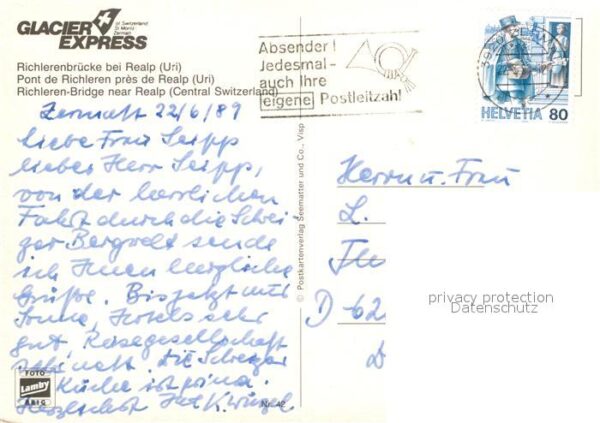 GLACIER
EXPRESS
St. Moritz
Zermatt
Richlerenbrücke bei Realp (Uri)
Pont de Richleren près de Realp (Uri)
Richleren-Bridge near Realp (Central Switzerland)
Absender!
Jedesmal -
auch Ihre
eigene Postleitzahl
HELVETIA 80
Zermatt 22/6/89
Liebe Frau Seipp
lieber Herr Seipp,
von der herrlichen
Fahrt durch die Schwei-
zer Bergwelt sende
ich Ihnen herzliche
Grüße. Bis jetzt nur
Sonne, Hotels sehr
gut Reisegesellschaft
Die
Küche ist prima.
Herzlichst Ihr K.
© Postkartenverlag Seematter und Co., Visp
Herrn u. Frau
L.
D-62
privacy protection
Datenschutz
FOTO
Lamby
Nr. 42